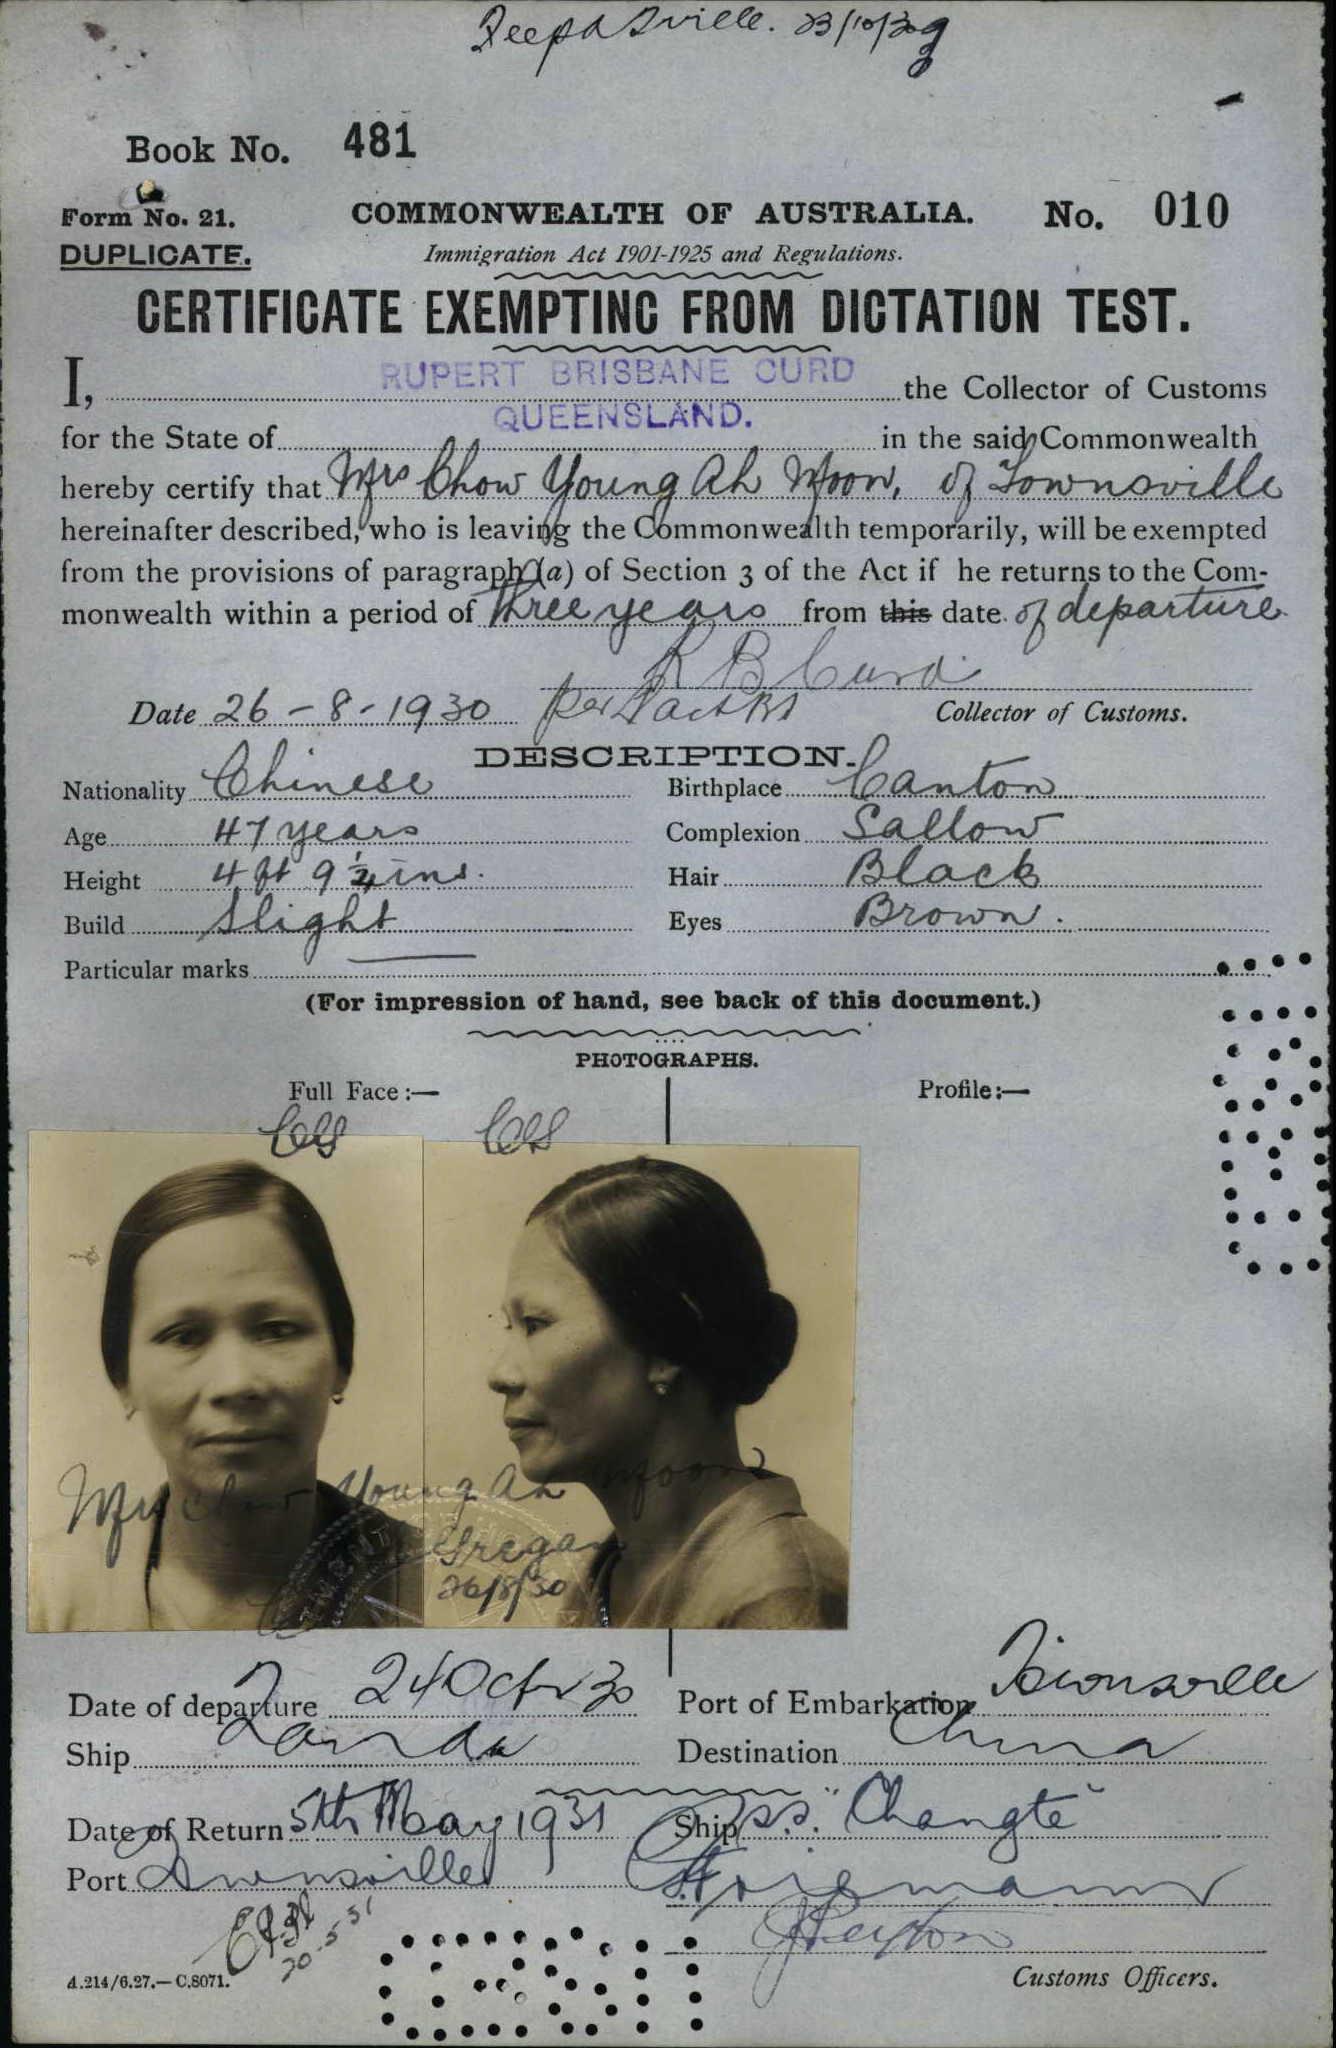 23/10/30
Book No. 481
Form No. 21.
COMMONWEALTH OF AUSTRALIA.
No. 010
DUPLICATE.
Immigration Act 1901-1925 and Regulations.
CERTIFICATE EXEMPTING FROM DICTATION TEST.
I, RUPERT BRISBANE CURD the Collector of Customs
for the State of QUEENSLAND. in the said Commonwealth
hereby certify that Mrs Chow Young Ah Moon, of Townsville
hereinafter described, who is leaving the Commonwealth temporarily, will be exempted
from the provisions of paragraph (a) of Section 3 of the Act if he returns to the Com-
monwealth within a period of three years from this date of departure
R B Curd
Date 26-8-1930 per Collector of Customs.
DESCRIPTION.
Nationality Chinese Birthplace Canton
Age 47 years Complexion Sallow
Height 4 ft 9 1/4 ins. Hair Black
Build Slight Eyes Brown.
Particular marks
(For impression of hand, see back of this document.)
PHOTOGRAPHS.
Full Face:— Profile:—
Mrs Chow Young Ah Moon
26/8/30
Date of departure 24 Oct 30 Port of Embarkation Townsville
Ship Tanda Destination China
Date of Return 5th May 1931 Ship s.s. "Changte"
Port Townsville
20-5-31
A.214/6.27.—C.8071.
Customs Officers.